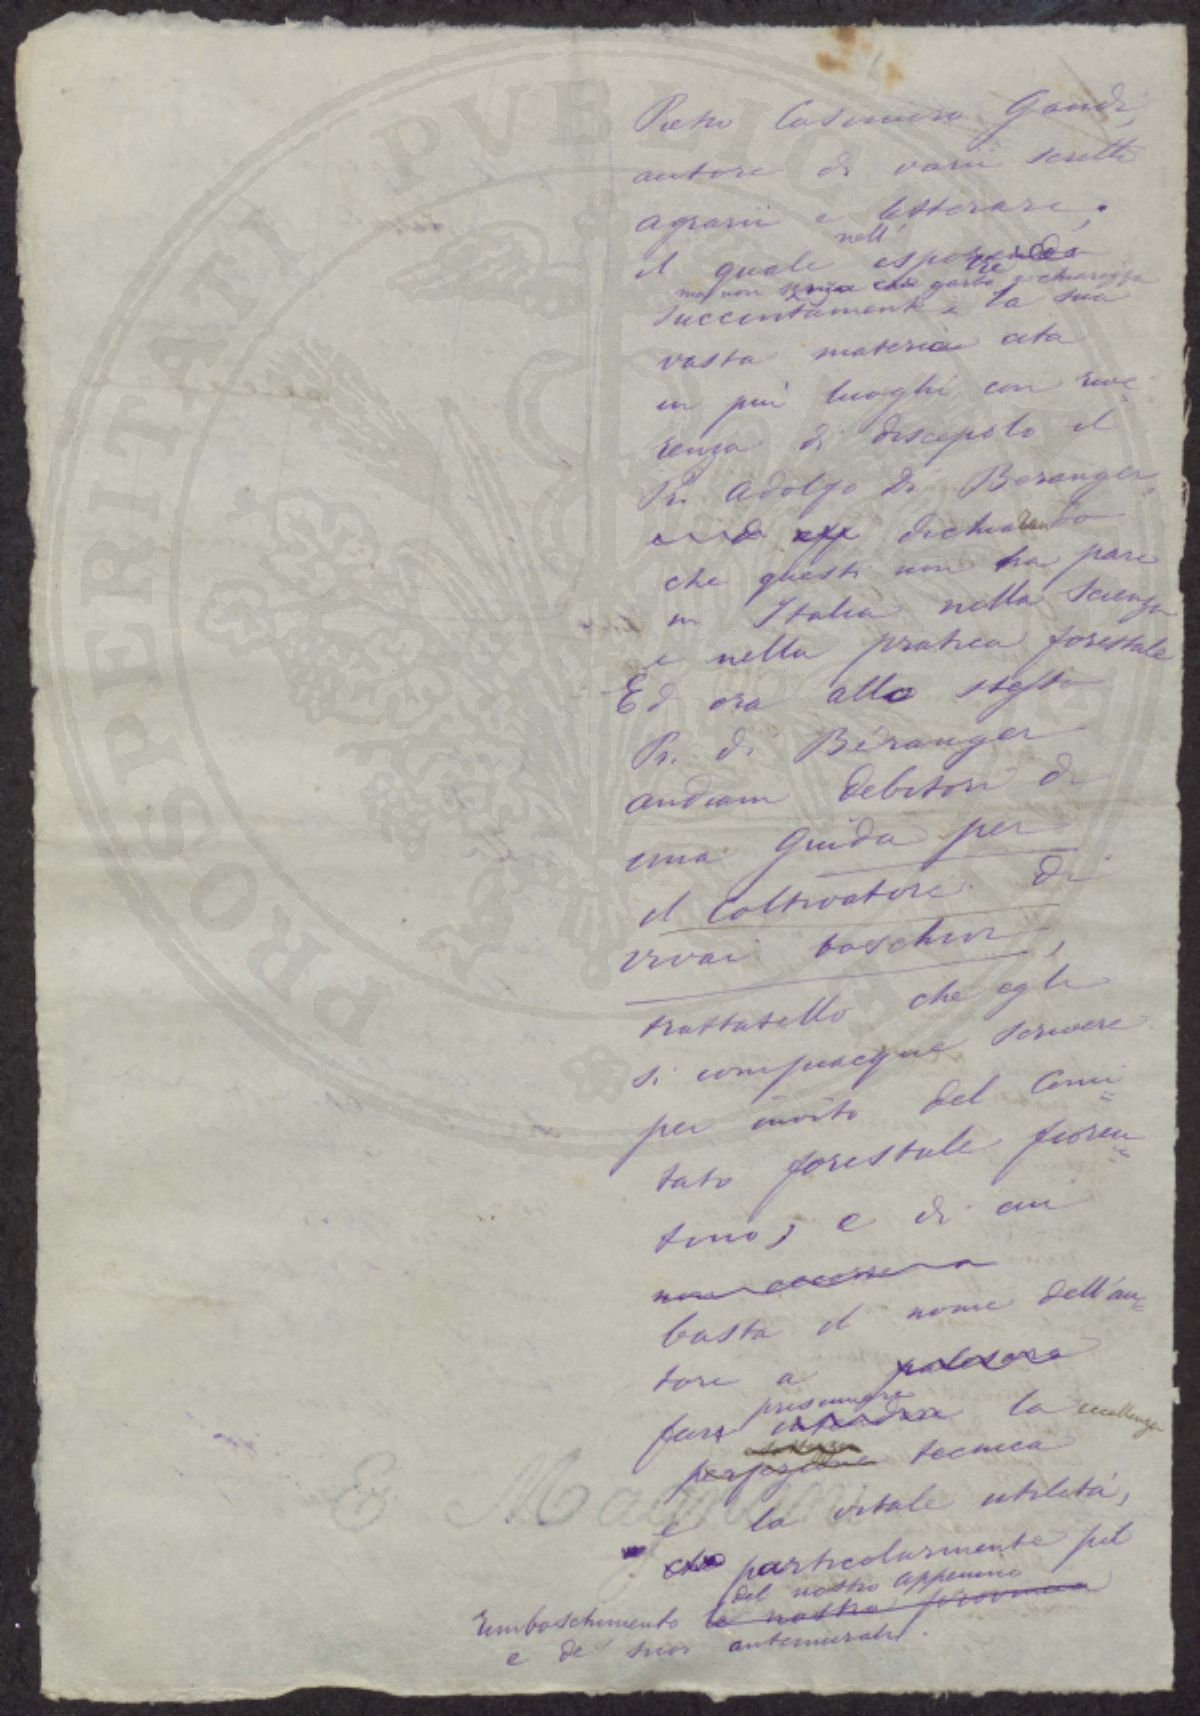 Pietro Casimiro Gandi,
autore di varii scritti
agrarii e letterarii,
il quale nell' esporre
succintamente, ma non senza garbo e chiarezza la sua
vasta materia cita
in più luoghi con reve=
renza di discepolo il
Pr. Adolfo di Beranger,
dichiarando
che questi non ha pari
in Italia nella scienza
e nella pratica forestale
Ed ora allo stesso
Pr. di Béranger
andiam debitori di
una Guida per
il Coltivatore di
vivai boschivi,
trattatello che egli
si compiacque scrivere
per invito del Comi=
tato forestale fioren=
tino, e di cui
basta il nome dell'au=
tore a
far presumere la eccellenza
tecnica
e la vitale utilità,
particolarmente pel
rimboschimento del nostro appennino
e de' suoi antemurali.
PROSPERITATI PVBLICAE